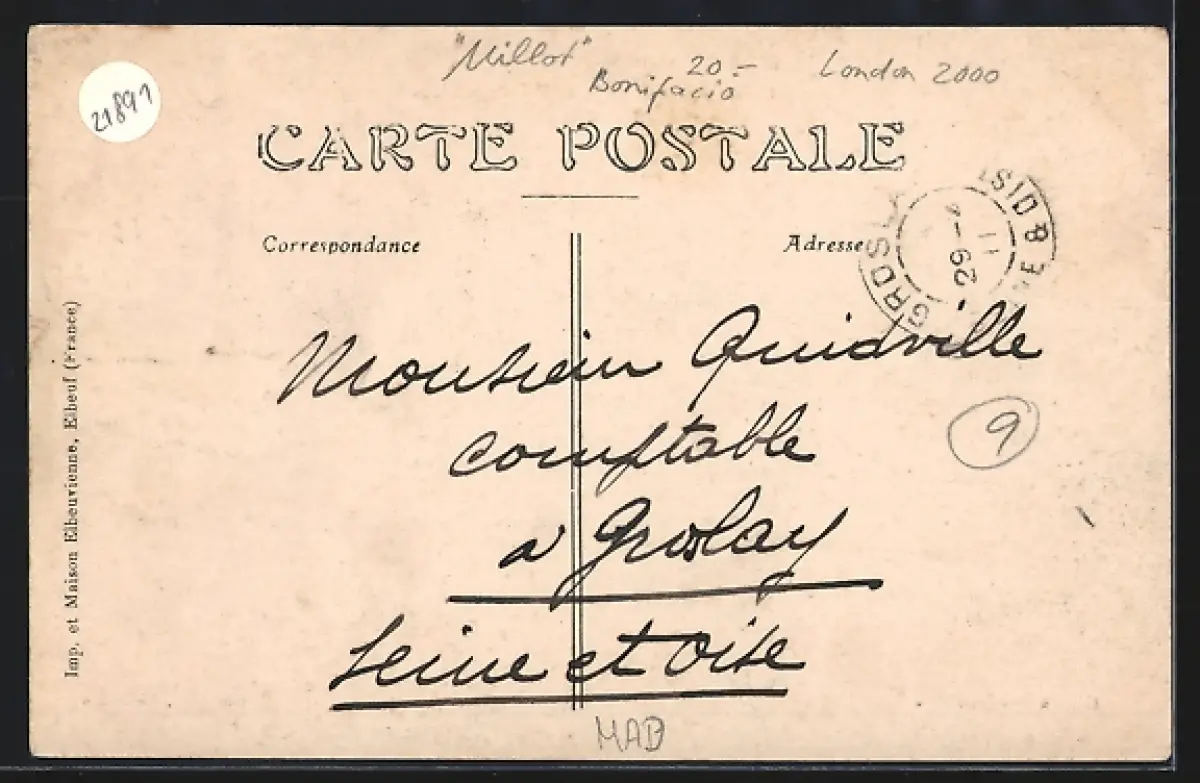 "Millot"
Bonifacio
20.-
London 2000
21891
CARTE POSTALE
Correspondance
Adresse
GROSL
11
29 - 4
8 DIST
Monsieur Quidville
comptable
a Groslay
Seine et Oise
9
MAD
Imp. et Maison Elbeuvienne, Elbeuf (France)